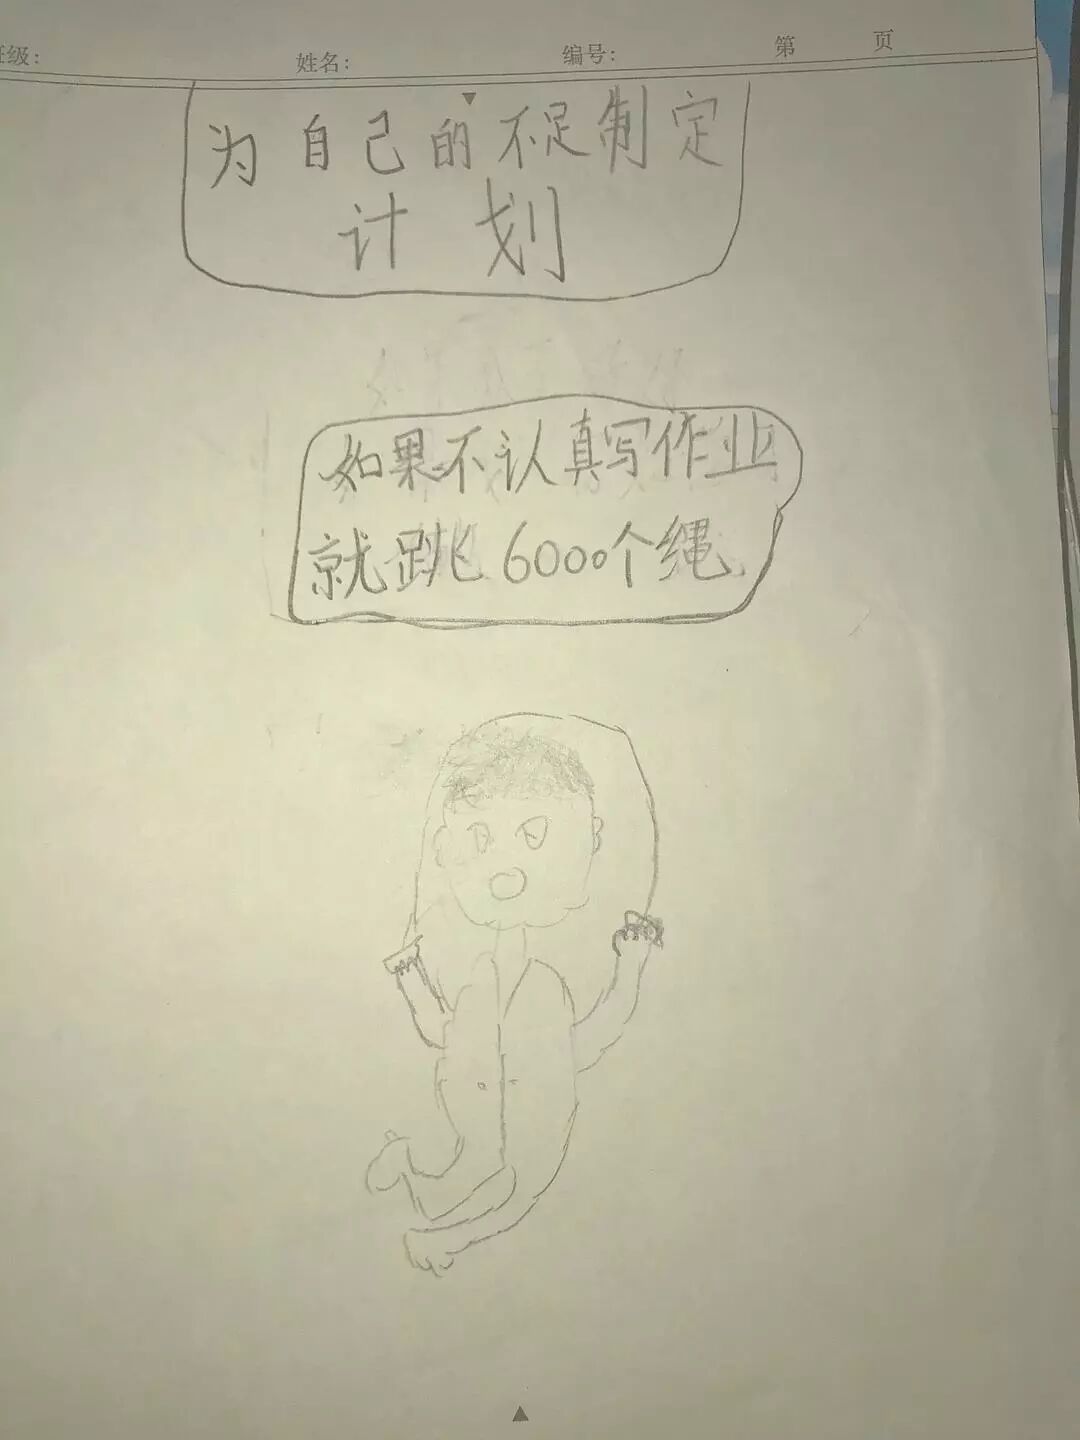 班级： 姓名： 编号： 第 页
为自己的不足制定
计划
如果不认真写作业
就跳6000个绳